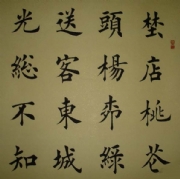 埜店桃花
頭楊柳綠
送客東城
光総不知